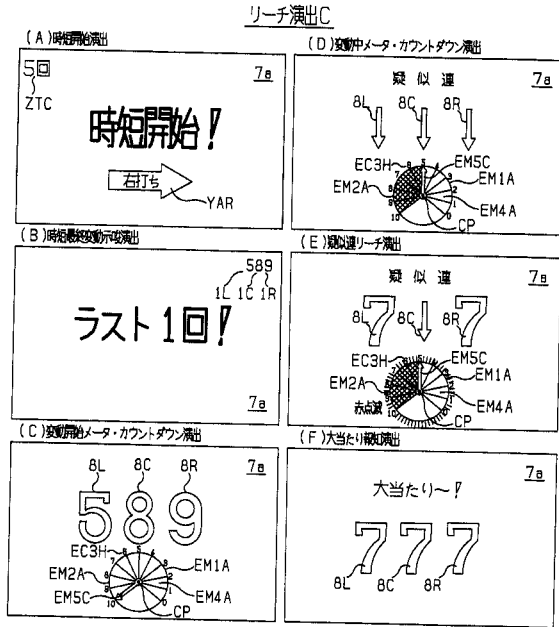 リーチ演出C
(A)時短開始演出
5回
7a
ZTC
時短開始!
右打ち
YAR
(B)時短最終変動示唆演出
589
1L 1C 1R
ラスト1回!
7a
(C)変動開始メータ・カウントダウン演出
8L 8C 8R
7a
589
EC3H
EM1A
EM2A
EM4A
EM5C
CP
0 1 2 3 4 5 6 7 8 9 10
(D)変動中メータ・カウントダウン演出
疑似連
7a
8L 8C 8R
EC3H
EM5C
EM1A
EM2A
EM4A
CP
0 1 2 3 4 5 6 7 8 9 10
(E)疑似連リーチ演出
疑似連
7a
7 7
8L 8C 8R
EC3H
EM5C
EM1A
EM2A
EM4A
赤点滅
CP
(F)大当たり報知演出
7a
大当たり〜!
777
8L 8C 8R